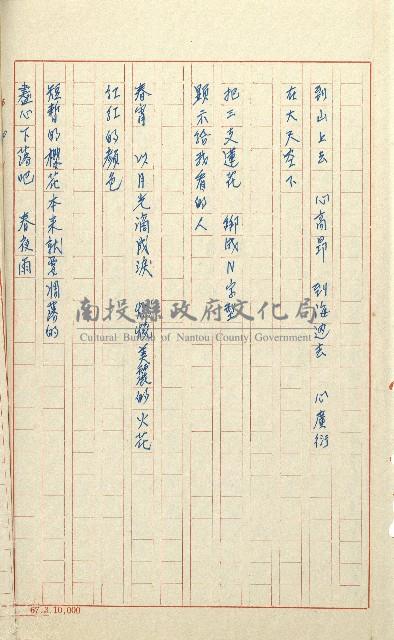 到山上去　心高昂　到海边去　心廣衍
在大天空下
把三支蓮花　綁成N字型
顕示给我看的人
春宵　以月光滴成淚　燃燒美麗的火花
红红的顏色
短暫的櫻花本來就要凋落的
盡心下落吧　春夜雨
南投縣政府文化局
Cultural Bureau of Nantou County Government
67.3.10,000